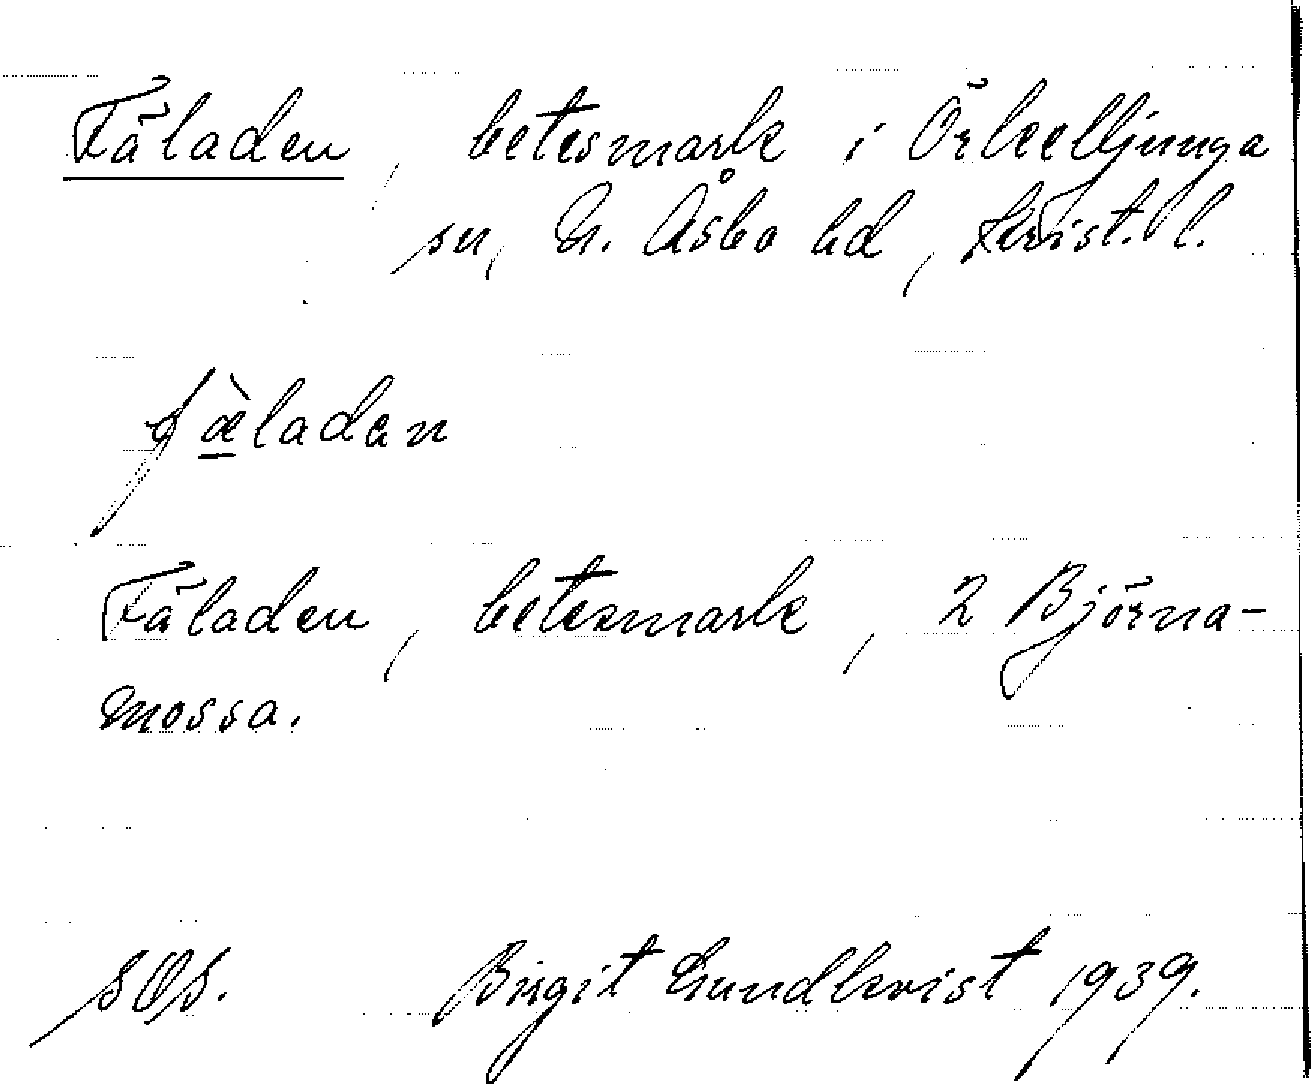 Fäladen, betesmark i Örkelljunga
sn, N. Åsbo hd, Krist. l.
fæ̀ladan
Fäladen, betesmark, 2 Björna-
mossa.
SOS. Birgit Lundkvist 1939.